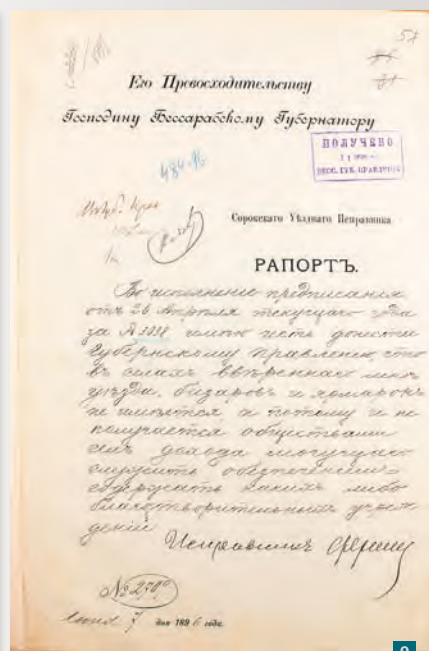 57
Его Превосходительству
Господину Бессарабскому Губернатору
ПОЛУЧЕНО
БЕСС. ГУБ. ПРАВЛЕНІЕ
Сорокскаго Уѣзднаго Исправника
РАПОРТЪ.
Во исполненіе предписанія
отъ 26 Апрѣля текущаго года
за № имѣю честь донести
Губернскому Правленію, что
въ селахъ ввѣреннаго мнѣ
уѣзда, базаровъ и ярмарокъ
не имѣется а потому и не
получается обществами
дохода могущаго
служить обезпеченіемъ
содержать какихъ либо
благотворительныхъ учреж
деній
Исправникъ
№
7 дня 1896 года.
9